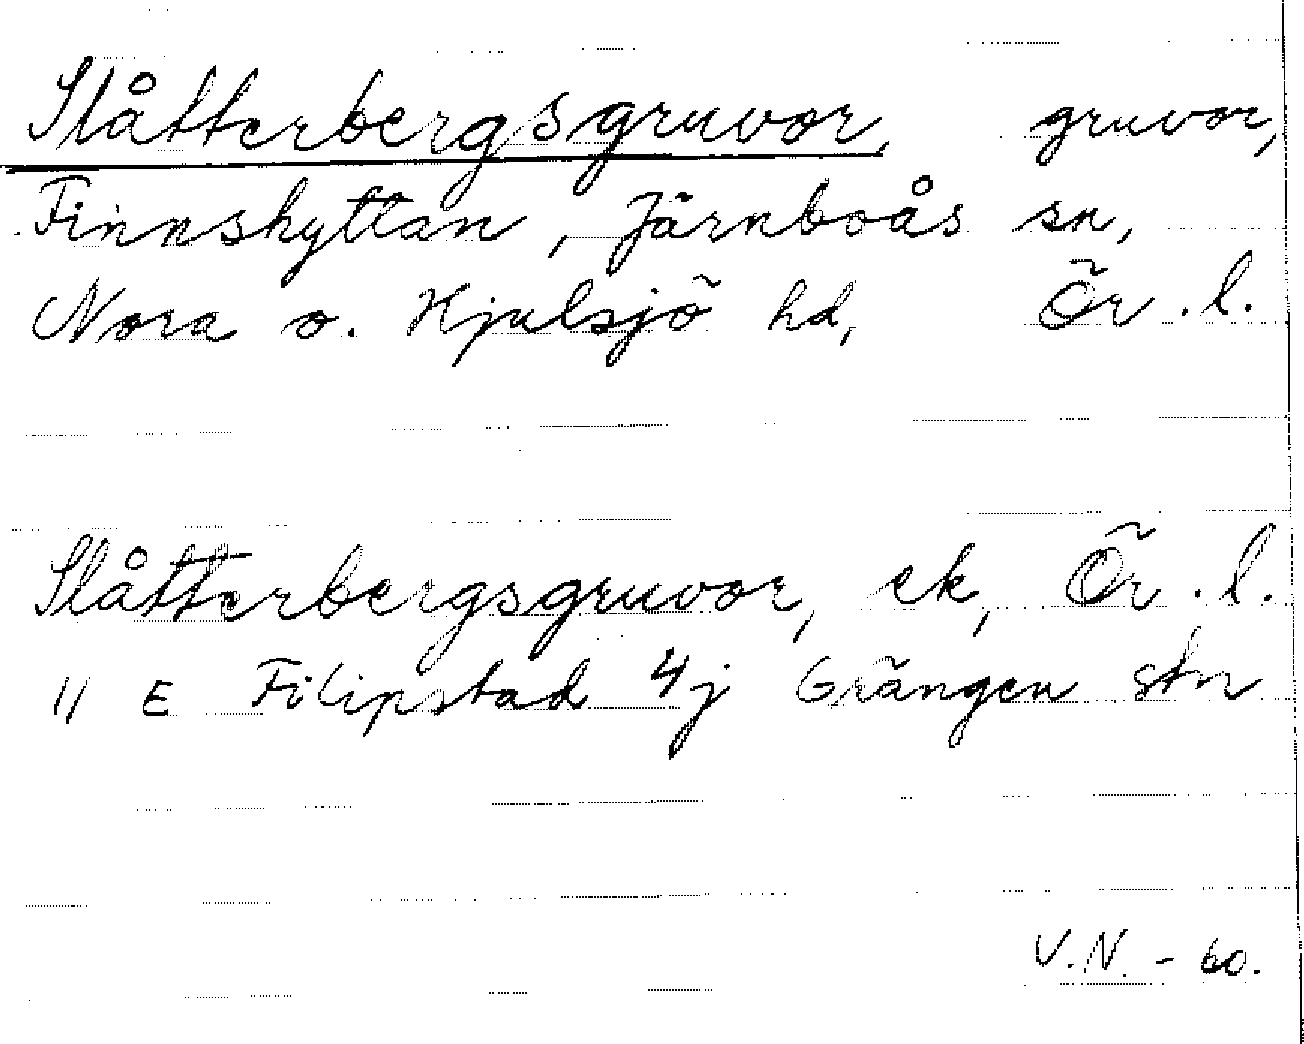 Slåtterbergsgruvor, gruvor,
Finnshyttan, Järnboås sn,
Nora o. Hjulsjö hd, Ör. l.
Slåtterbergsgruvor, ek, Ör. l.
11 E Filipstad 4j Grängen stn
V.N. - 60.